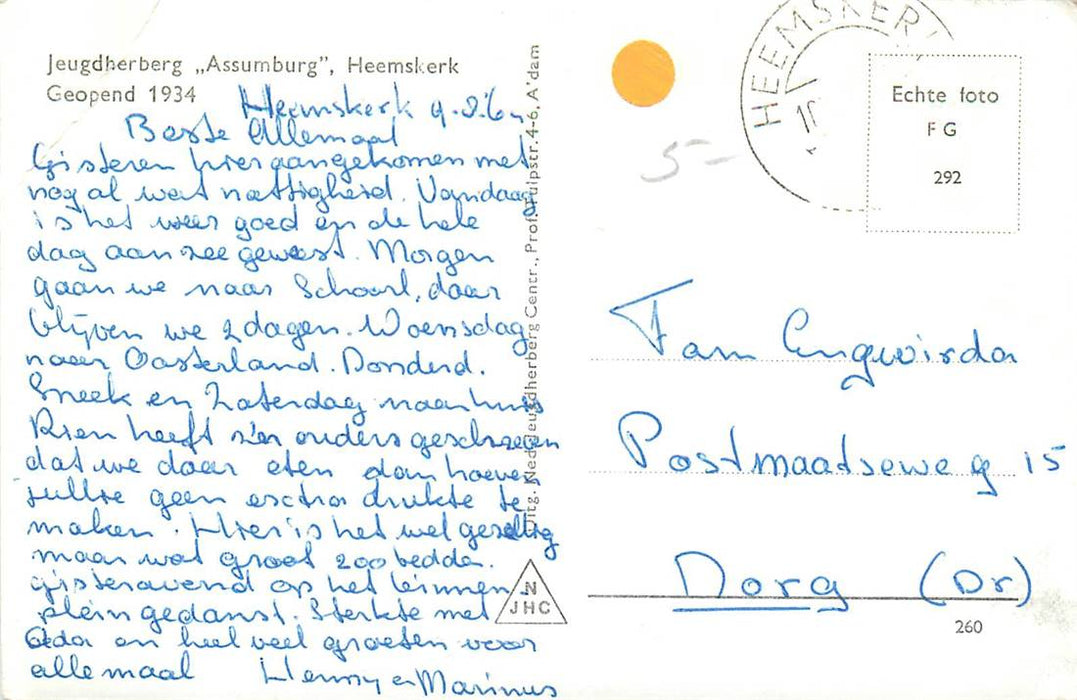 Jeugdherberg „Assumburg”, Heemskerk
Geopend 1934
Heemskerk
Beste Allemaal
Gisteren hier aangekomen met
nog al wat nattigheid. Vandaag
is het weer goed en de hele
dag aan zee geweest. Morgen
gaan we naar Schoorl, daar
blijven we 2 dagen. Woensdag
naar Oosterland. Donderd.
Sneek en Zaterdag naar huis
Rien heeft z'n ouders geschreven
dat we daar eten dan hoeven
jullie geen exctra drukte te
maken. Hier is het wel gezellig
maar wat groot 200 bedden.
gisteravond op het binnen
plein gedanst. Sterkte met
en heel veel groeten voor
allemaal Henny en Marinus
Uitg. Ned. Jeugdherberg Centr., Prof. Tulpstr. 4-6, A'dam
N
JHC
HEEMSKERK
Echte foto
FG
292
5-
Fam Engwirda
Postmaatseweg 15
Norg (Dr)
260